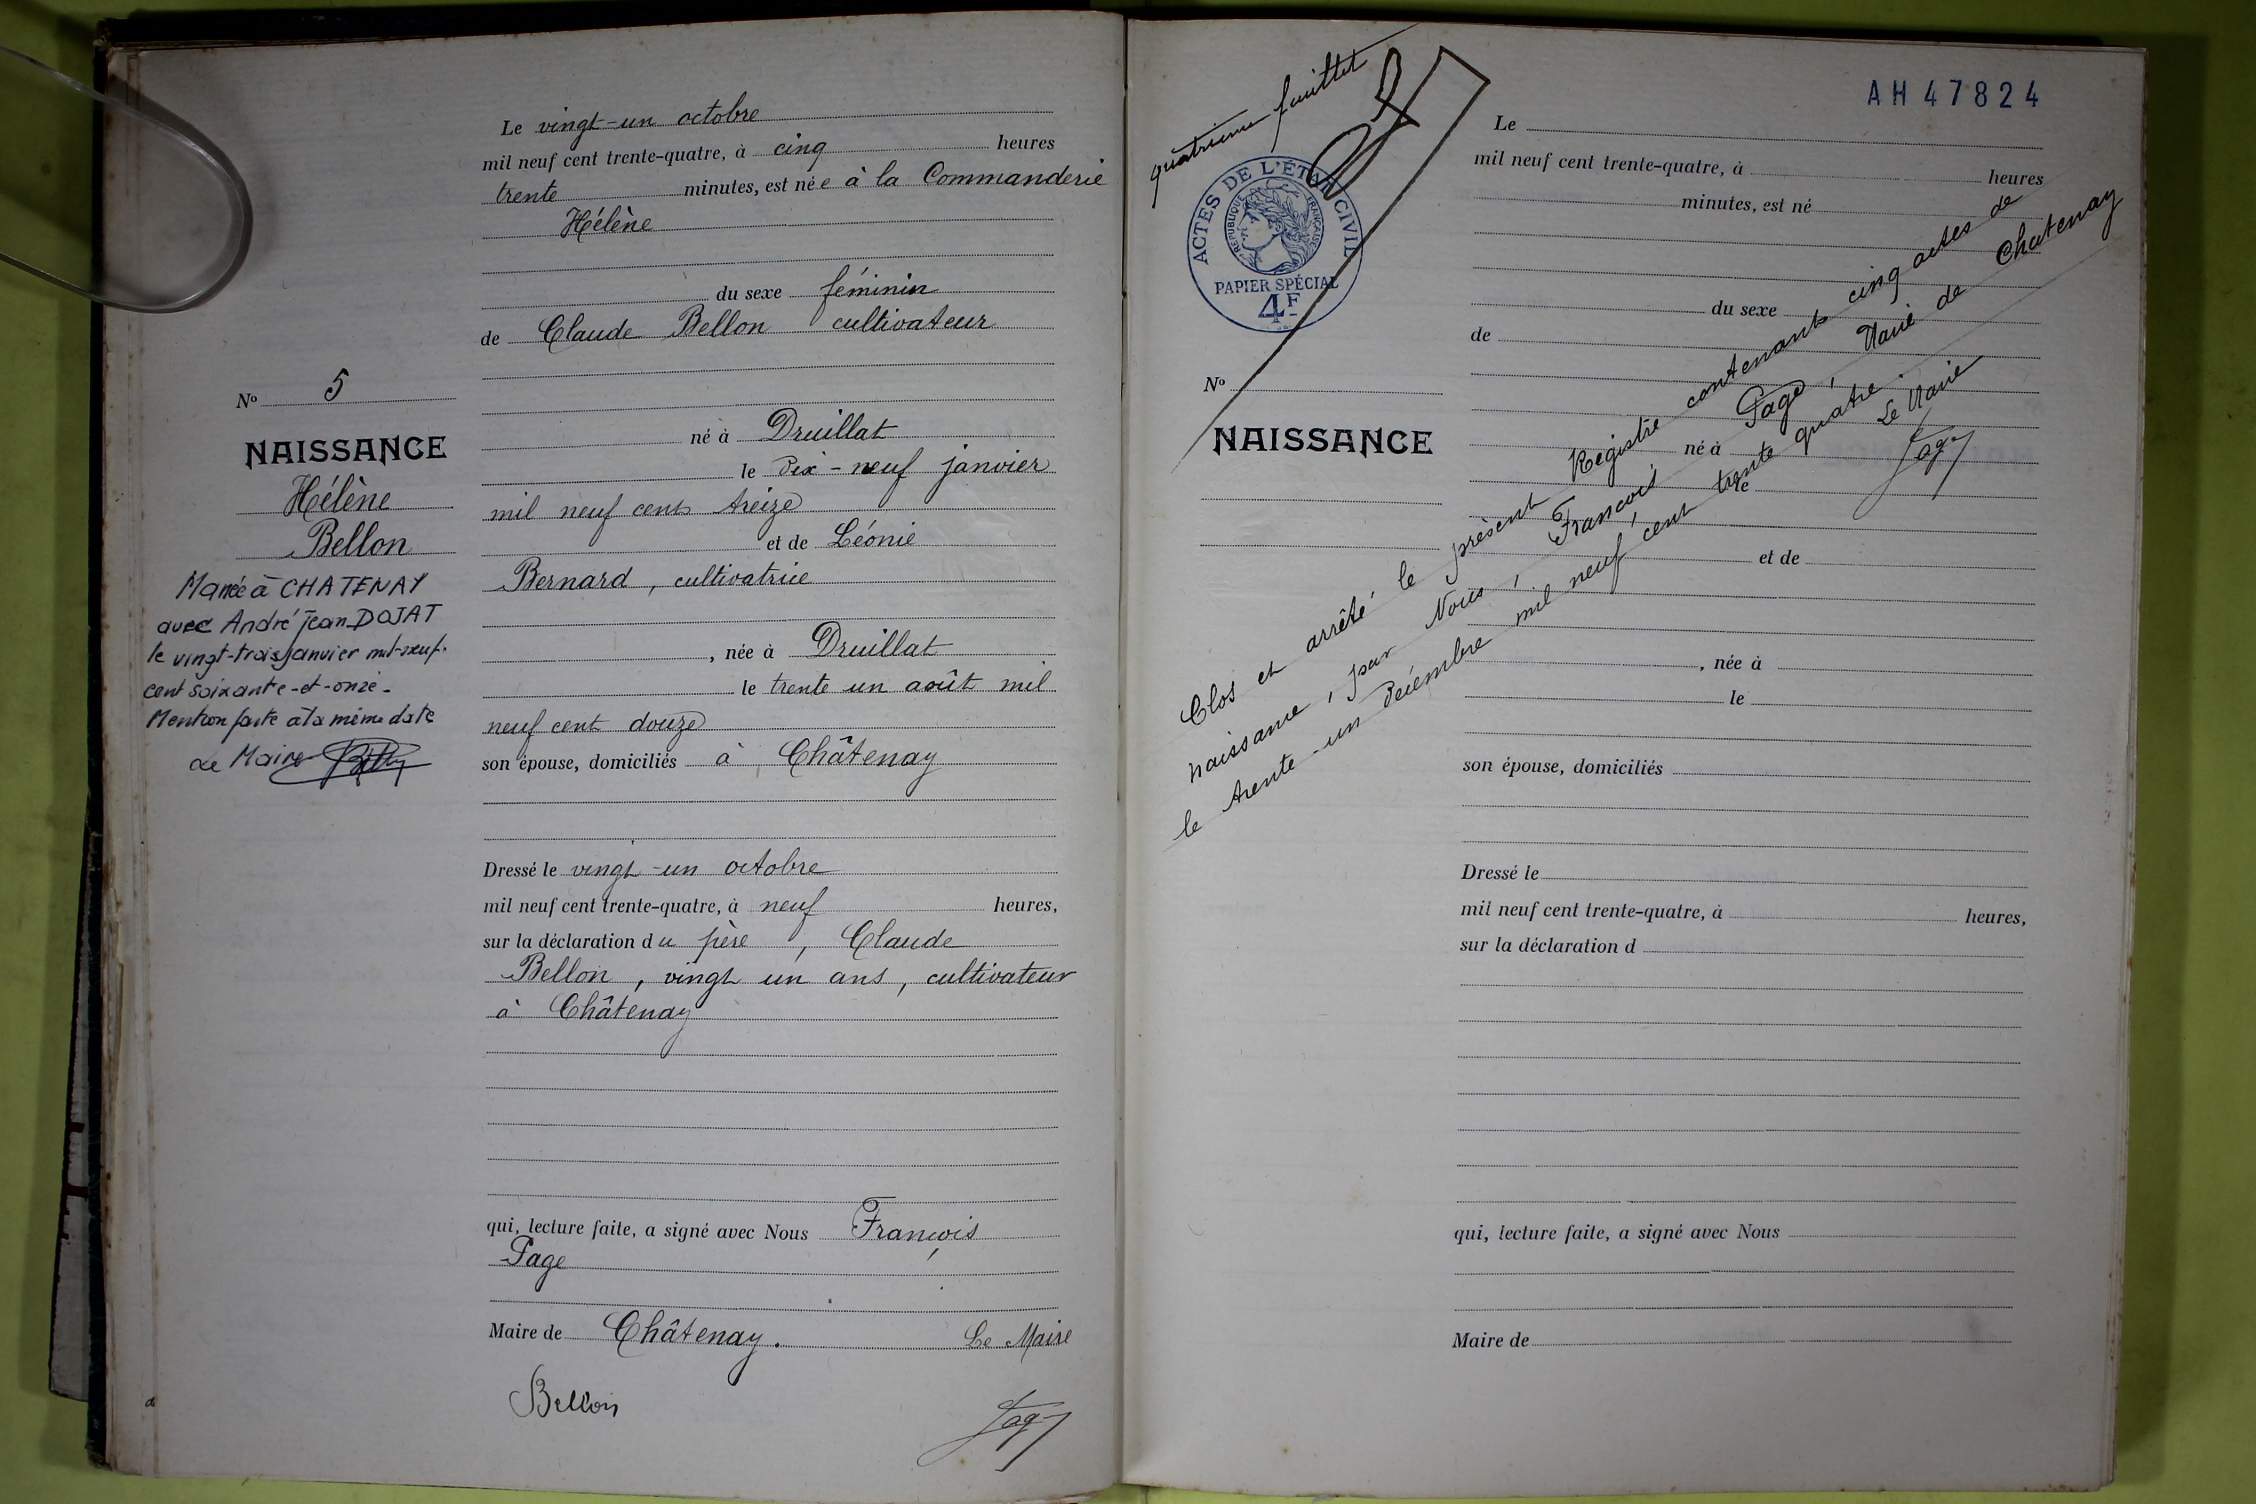 Le vingt-un octobre
mil neuf cent trente-quatre, à cinq heures
trente minutes, est née à la Commanderie
Hélène
du sexe féminin
de Claude Bellon cultivateur
né à Druillat
le dix-neuf janvier
mil neuf cent treize
et de Léonie
Bernard, cultivatrice
, née à Druillat
le trente un août mil
neuf cent douze
son épouse, domiciliés à Châtenay
Dressé le vingt-un octobre
mil neuf cent trente-quatre, à neuf heures,
sur la déclaration du père, Claude
Bellon, vingt un ans, cultivateur
à Châtenay
qui, lecture faite, a signé avec Nous François
Page
Maire de Châtenay. Le Maire
Bellon
Page
No 5
NAISSANCE
Hélène
Bellon
Mariée à CHATENAY
avec André Jean DOJAT
le vingt-trois janvier mil-neuf-
cent soixante-et-onze-
Mention faite à la même date
Le Maire
quatrième feuillet
ACTES DE L'ÉTAT CIVIL
RÉPUBLIQUE FRANÇAISE
PAPIER SPÉCIAL
4F
AH47824
No
NAISSANCE
Le
mil neuf cent trente-quatre, à heures
minutes, est né
du sexe
de
né à
le
et de
, née à
le
son épouse, domiciliés
Dressé le
mil neuf cent trente-quatre, à heures,
sur la déclaration d
qui, lecture faite, a signé avec Nous
Maire de
Clos et arrêté le présent Régistre contenant cinq actes de
naissance, par Nous, François Page, Maire de Chatenay
le trente-un Décembre mil neuf cent trente quatre.
Le Maire
Page